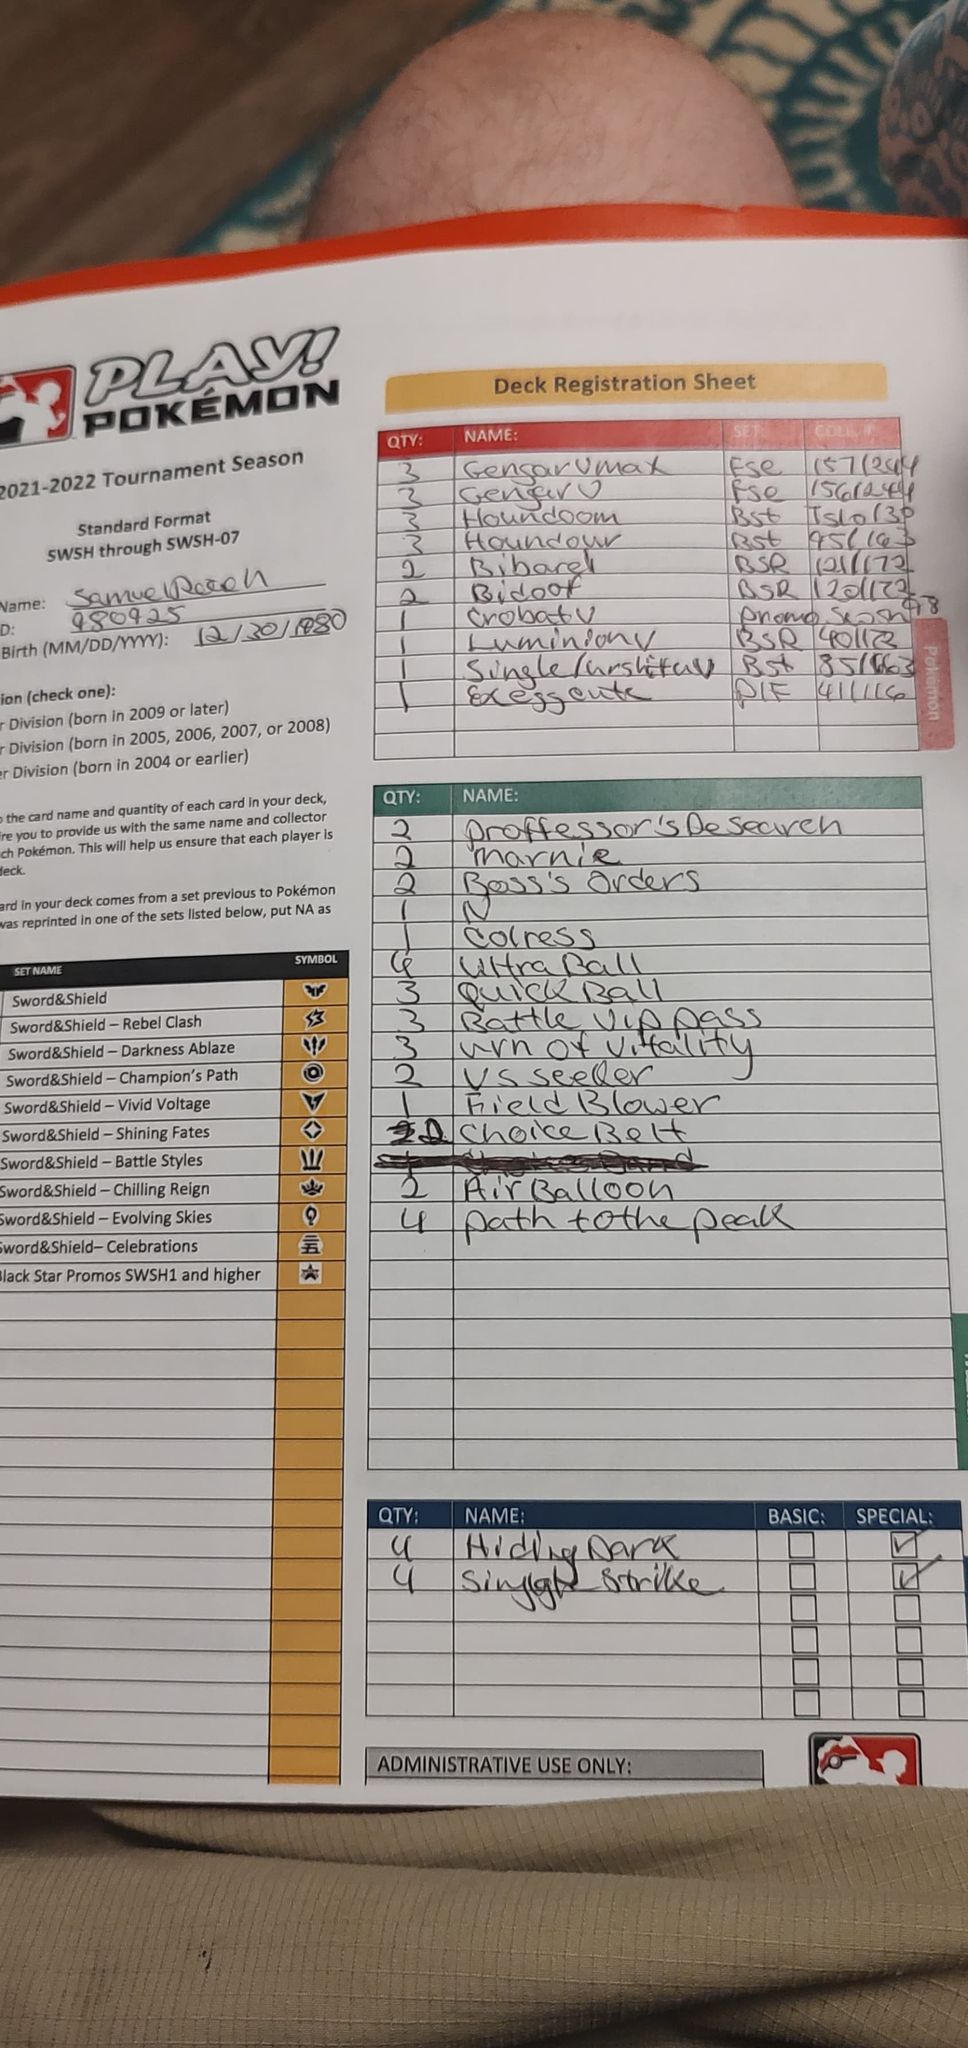 PLAY!
POKÉMON
2021-2022 Tournament Season
Standard Format
SWSH through SWSH-07
Name: Samuel
D: 980925
Birth (MM/DD/YYYY): 12/30/1980
ion (check one):
r Division (born in 2009 or later)
r Division (born in 2005, 2006, 2007, or 2008)
er Division (born in 2004 or earlier)
the card name and quantity of each card in your deck,
ire you to provide us with the same name and collector
ch Pokémon. This will help us ensure that each player is
deck.
ard in your deck comes from a set previous to Pokémon
was reprinted in one of the sets listed below, put NA as
SET NAME SYMBOL
Sword&Shield
Sword&Shield – Rebel Clash
Sword&Shield – Darkness Ablaze
Sword&Shield – Champion's Path
Sword&Shield – Vivid Voltage
Sword&Shield – Shining Fates
Sword&Shield – Battle Styles
Sword&Shield – Chilling Reign
Sword&Shield – Evolving Skies
Sword&Shield– Celebrations
Black Star Promos SWSH1 and higher
Deck Registration Sheet
QTY: NAME: SET: COLL. #
3 Gengar Vmax Fse 157/244
3 Gengar V Fse 156/244
3 Houndoom Bst
3 Houndour Bst 95/163
2 Bibarel BSR 121/172
2 Bidoof BSR 120/172
1 Crobat V promo
1 Luminion V BSR 40/172
1 Single/urshifu V Bst 85/163
1 Exeggcute 41/116
Pokémon
QTY: NAME:
2 Proffessor's Research
2 marnie
2 Boss's Orders
1 N
1 Colress
4 Ultra Ball
3 Quick Ball
3 Battle Vip pass
3 urn of vitality
2 VS seeker
1 Field Blower
2 Choice Belt
2 Air Balloon
4 path to the peak
QTY: NAME: BASIC: SPECIAL:
4 Hiding Dark
4 Single Strike
ADMINISTRATIVE USE ONLY: